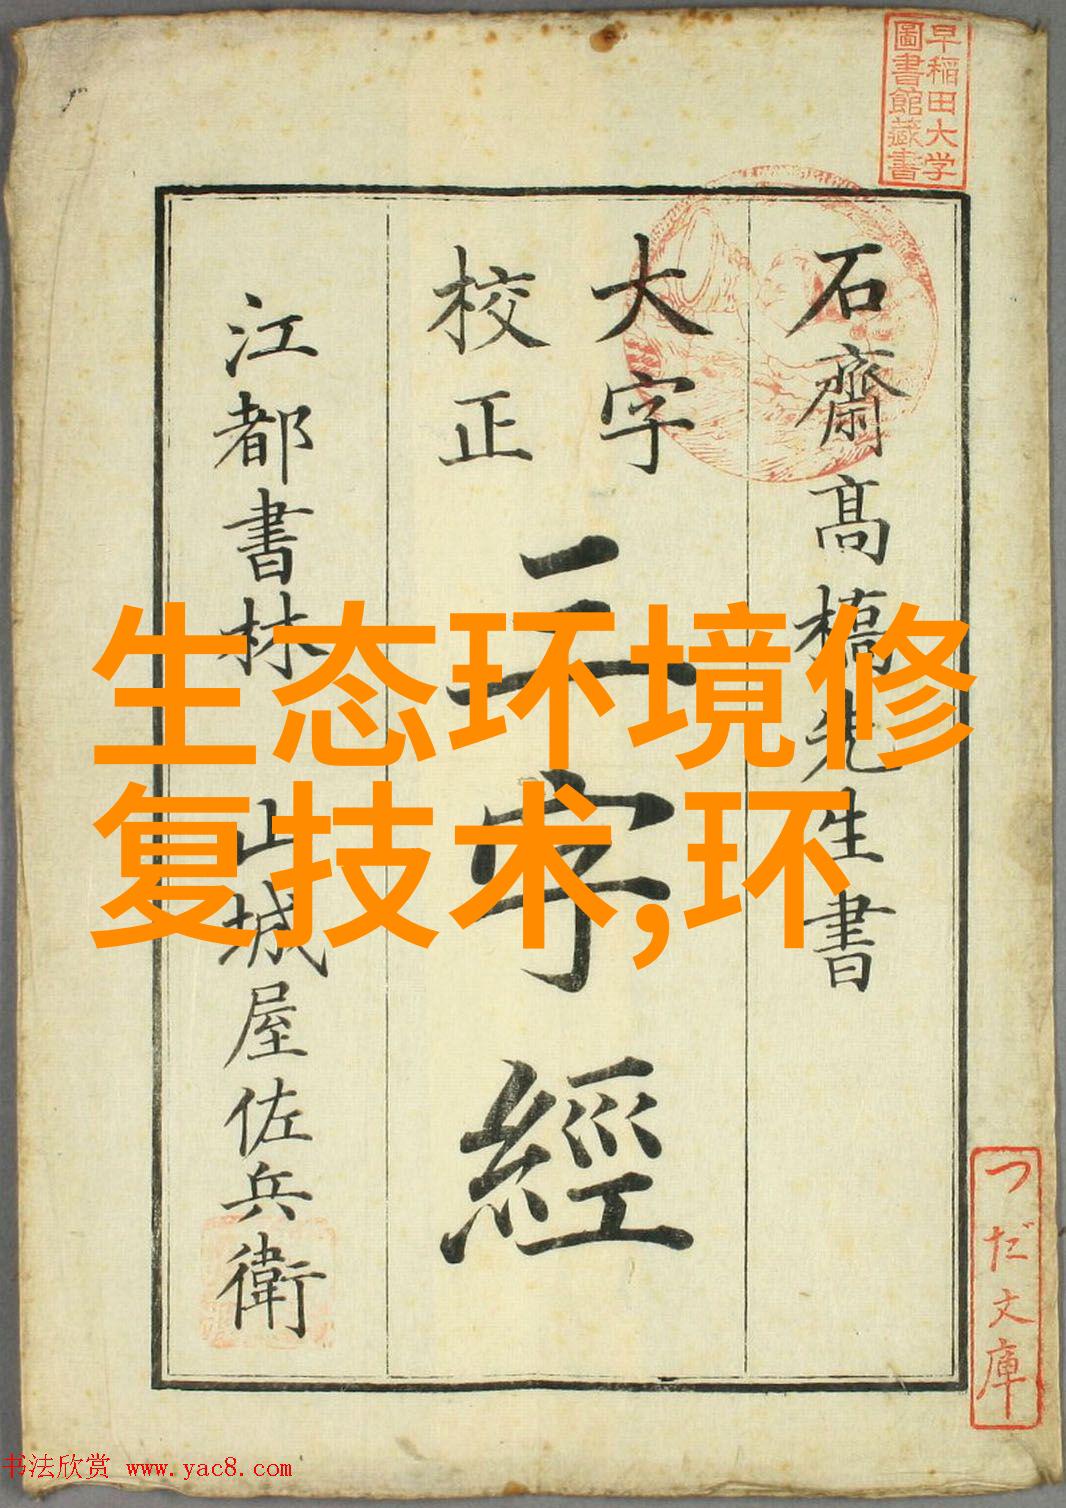 早稲田大学
圖書館藏書
石齋髙橋先生書
大字
校正
三字經
江都書林 山城屋佐兵衛
生态环境修
复技术,环
つだ文庫
书法欣赏 www.yac8.com